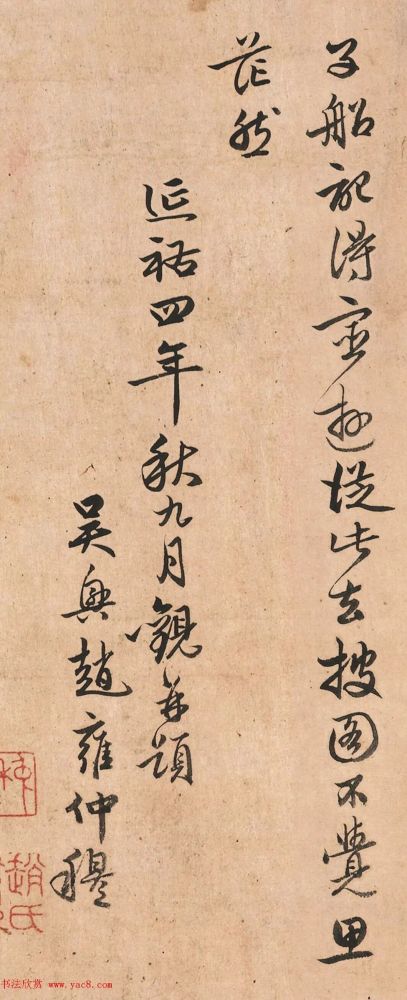 子船記得宦遊從此去披圖不覺思
茫然
延祐四年秋九月觀并題
吴興趙雍仲穆
趙氏
书法欣赏 www.yac8.com